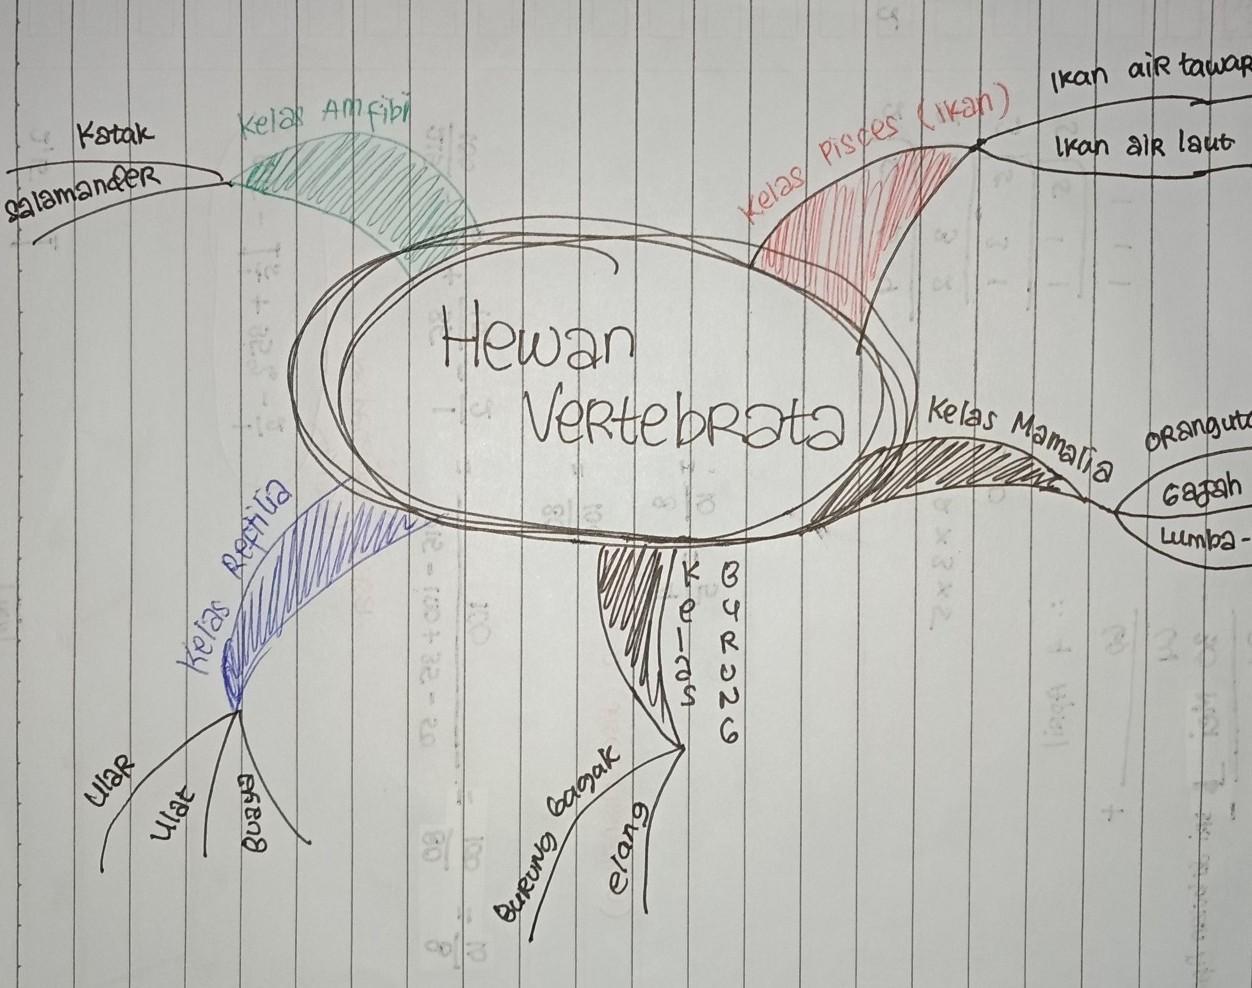 Hewan
Vertebrata
Kelas Amfibi
Katak
Salamander
Kelas Pisces (Ikan)
Ikan air tawar
Ikan air laut
Kelas Mamalia
Orangut
Gajah
Lumba-
Kelas Burung
Burung Gagak
elang
Kelas Reptilia
Ular
Ulat
Buaya